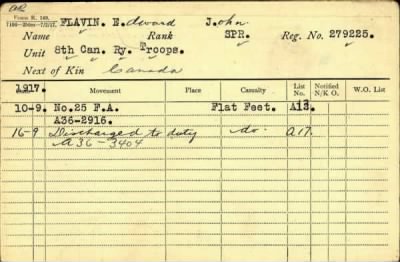 aR
Form R. 149. FLAVIN. E.dward J.ohn
Name Rank SPR. Reg. No. 279225.
Unit 8th Can. Ry. Troops.
Next of Kin Canada
1917. Movement Place Casualty List No. Notified N/K O. W.O. List
10-9. No.25 F.A. Flat Feet. A13.
A36-2916.
16-9 Discharged to duty do. A17.
A36-3404